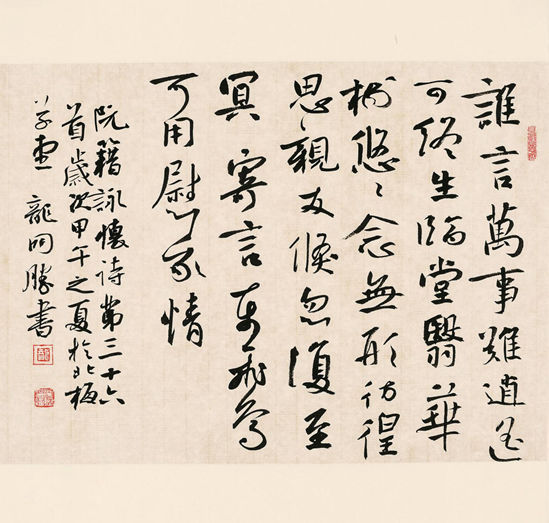 誰言萬事難逍遙
可終生臨堂翳華
樹悠〻念無形彷徨
思親友倏忽復至
冥寄言東飛鳥
可用慰我情
阮籍詠懷诗第三十六
首歲次甲午之夏於北
龍開勝書